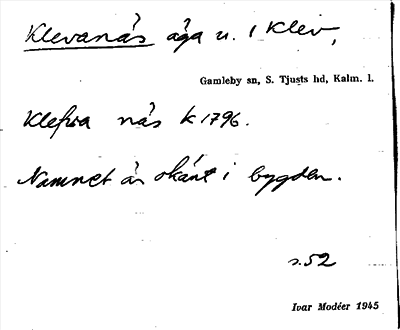 Klevanäs äga u. 1 Klev,
Gamleby sn, S. Tjusts hd, Kalm. l.
Klefwa näs k 1796.
Namnet är okänt i bygden.
s. 52
Ivar Modéer 1945